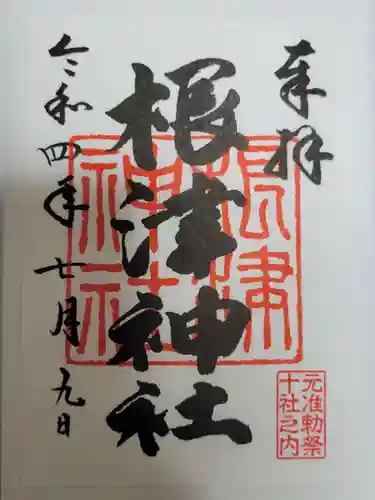 奉拝
根津神社
令和四年七月九日
根津神社
元准勅祭
十社之内